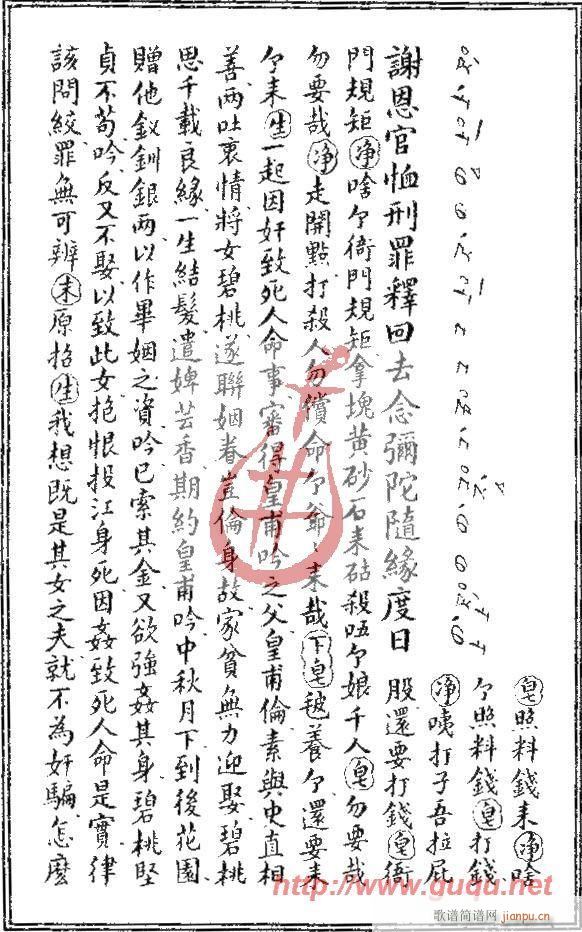 皂照料錢来净啥
个照料錢皂打錢
净咦打子吾拉屁
謝恩官恤刑罪釋回去念彌陀隨緣度日
股還要打錢皂衙
門規矩净啥个衙門規矩拿塊黄砂石来砧殺唔个娘千人皂勿要哉
勿要哉净走開點打殺人勿償命个爺〻来哉下皂毧養个還要来
个来生一起因奸致死人命事審得皇甫吟之父皇甫倫素與史直相
善两吐衷情將女碧桃遂聯姻眷豈倫身故家貧無力迎娶碧桃
思千載良緣一生結髮遣婢芸香期約皇甫吟中秋月下到後花園
贈他釵釧銀两以作畢姻之資吟已索其金又欲強姦其身碧桃堅
貞不苟吟反又不娶以致此女抱恨投江身死因姦致死人命是實律
該問絞罪無可辨末原招生我想既是其女之夫就不為奸騙怎麽
http://www.guqu.net
歌谱简谱网
jianpu.cn